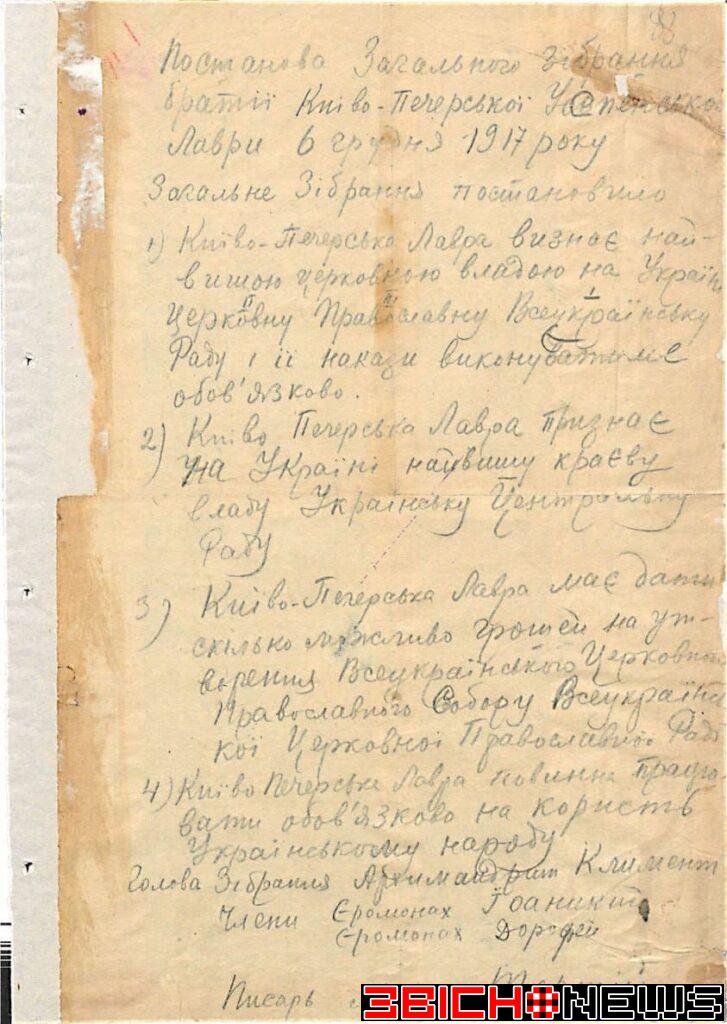 88
Постанова Загального Зібрання
братії Київо-Печерської Успенсько
Лаври 6 грудня 1917 року
Загальне Зібрання постановило
1) Київо-Печерська Лавра визнає най-
вишою церковною владою на Україн
II III I
Церковну Православну Всеукраїнську
Раду і її накази виконуватиме
обов'язково.
2) Київо Печерська Лавра признає
на Україні найвишу краєву
владу Українську Центральну
Раду
3) Київо-Печерська Лавра має дати
скілько можливо грошей на ут-
ворення Всеукраїнського Церковного
Православного Собору Всеукраїнс
кої Церковної Православної Ради
4) Київо Печерська Лавра повинна працю
вати обов'язково на користь
Українському народу
Голова Зібрання Архимандрит Климент
Члени Єромонах Іоаникій
Єромонах Дорофей
Писарь
ЗВІСНО NEWS